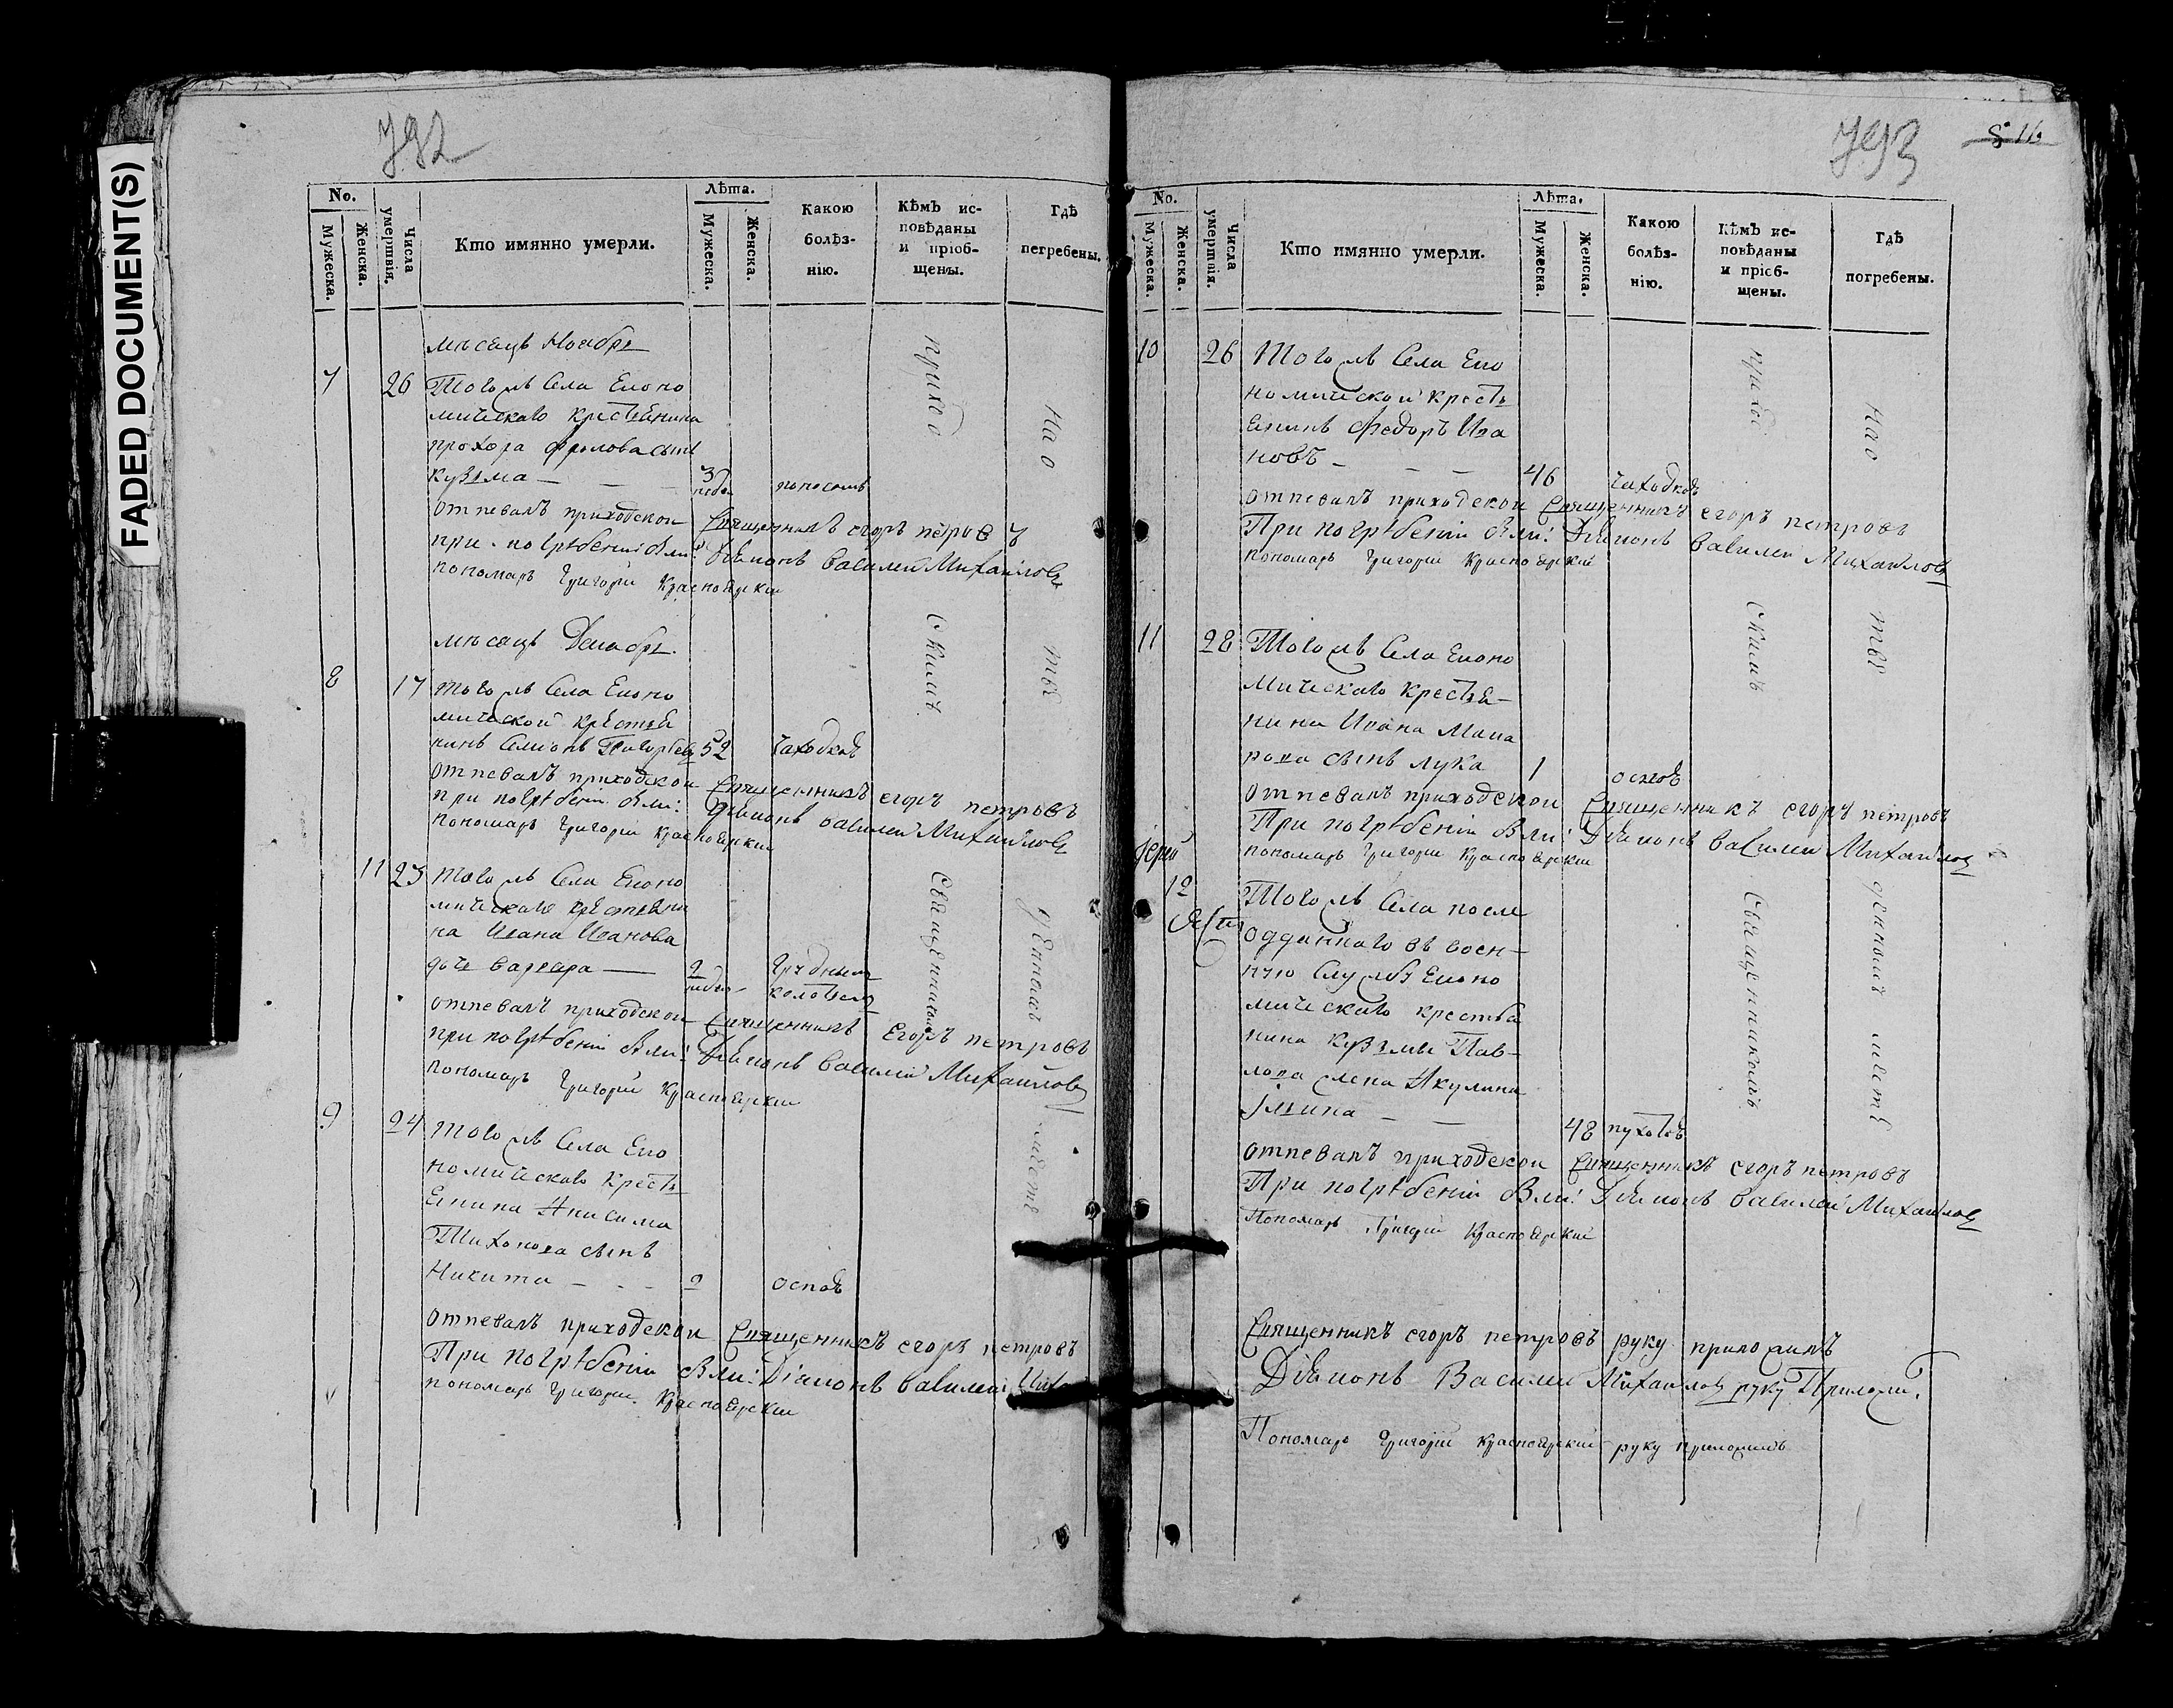 FADED DOCUMENT(S)
792
No.
Мужеска.
Женска.
Числа умертвія.
Кто имянно умерли.
Лѣта.
Мужеска.
Женска.
Какою болѣз-
нію.
Кѣмъ ис-
повѣданы
и пріоб-
щены.
Гдѣ
погребены.
мѣсяцъ Ноябрь
7 26 Тогожъ Села Еконо
мическаго крестьянина
прохора фролова сынъ
кузьма — — — 3 недел поносомъ
отпевалъ приходской Священникъ егоръ петровъ
при погрѣбеніи были: Діаконъ василей Михайловъ
пономарь Григорій Красноярскій
мѣсяцъ Декабрь.
8 17 тогожъ Села Еконо
мической крестья
нинъ Семіонъ 52 чахоткой
отпевалъ приходской Священникъ егоръ петровъ
при погрѣбеніи были: Діаконъ василей Михайловъ
пономарь Григорій Красноярскій
11 23 тогожъ Села Еконо
мическаго крестьяни
на Ивана Иванова
дочь варвара — 2 недел
отпевалъ приходской Священникъ Егоръ петровъ
при погрѣбеніи были: Діаконъ василей Михайловъ
пономарь Григорій Красноярскій
9 24 тогожъ Села Еко
номическаго кресть
янина Анисима
Тихонова сынъ
Никита — - - 2 оспой
отпевалъ приходской Священникъ егоръ петровъ
При погрѣбеніи были: Діаконъ василей
пономарь Григорій Красноярскій
приход
скимъ
Священникомъ
На о
тве
денномъ
месте
793
816
No.
Мужеска.
Женска.
Числа умертвія.
Кто имянно умерли.
Лѣта.
Мужеска.
Женска.
Какою
болѣз-
нію.
Кѣмъ ис-
повѣданы
и пріоб-
щены.
Гдѣ
погребены.
10 26 Тогожъ Села Еко
номической кресть
янинъ Федоръ Ива
новъ - — — 46 чахоткой
отпевалъ приходской Священникъ егоръ петровъ
При погрѣбеніи были: Діаконъ василей Михайловъ
пономарь Григорій Красноярскій
11 28 Тогожъ Села Еконо
мическаго крестья-
нина Ивана Мака
рова сынъ лука 1 оспой
отпевалъ приходской Священникъ егоръ петровъ
При погрѣбеніи были: Діаконъ василей Михайловъ
пономарь Григорій Красноярскій
12 Тогожъ Села после
одданнаго въ воен-
ную Службу Еконо
мическаго крестья
нина Кузьмы Пав-
лова жена Акулина
48
отпевалъ приходской Священникъ егоръ петровъ
При погрѣбеніи были: Діаконъ василей Михайловъ
Пономарь Григорій Красноярскій
приход
скимъ
Священникомъ
На о
тве
денномъ месте
Священникъ егоръ петровъ руку приложилъ
Діаконъ Василей Михайловъ руку Приложи.
Пономарь Григорій Красноярскій руку приложилъ